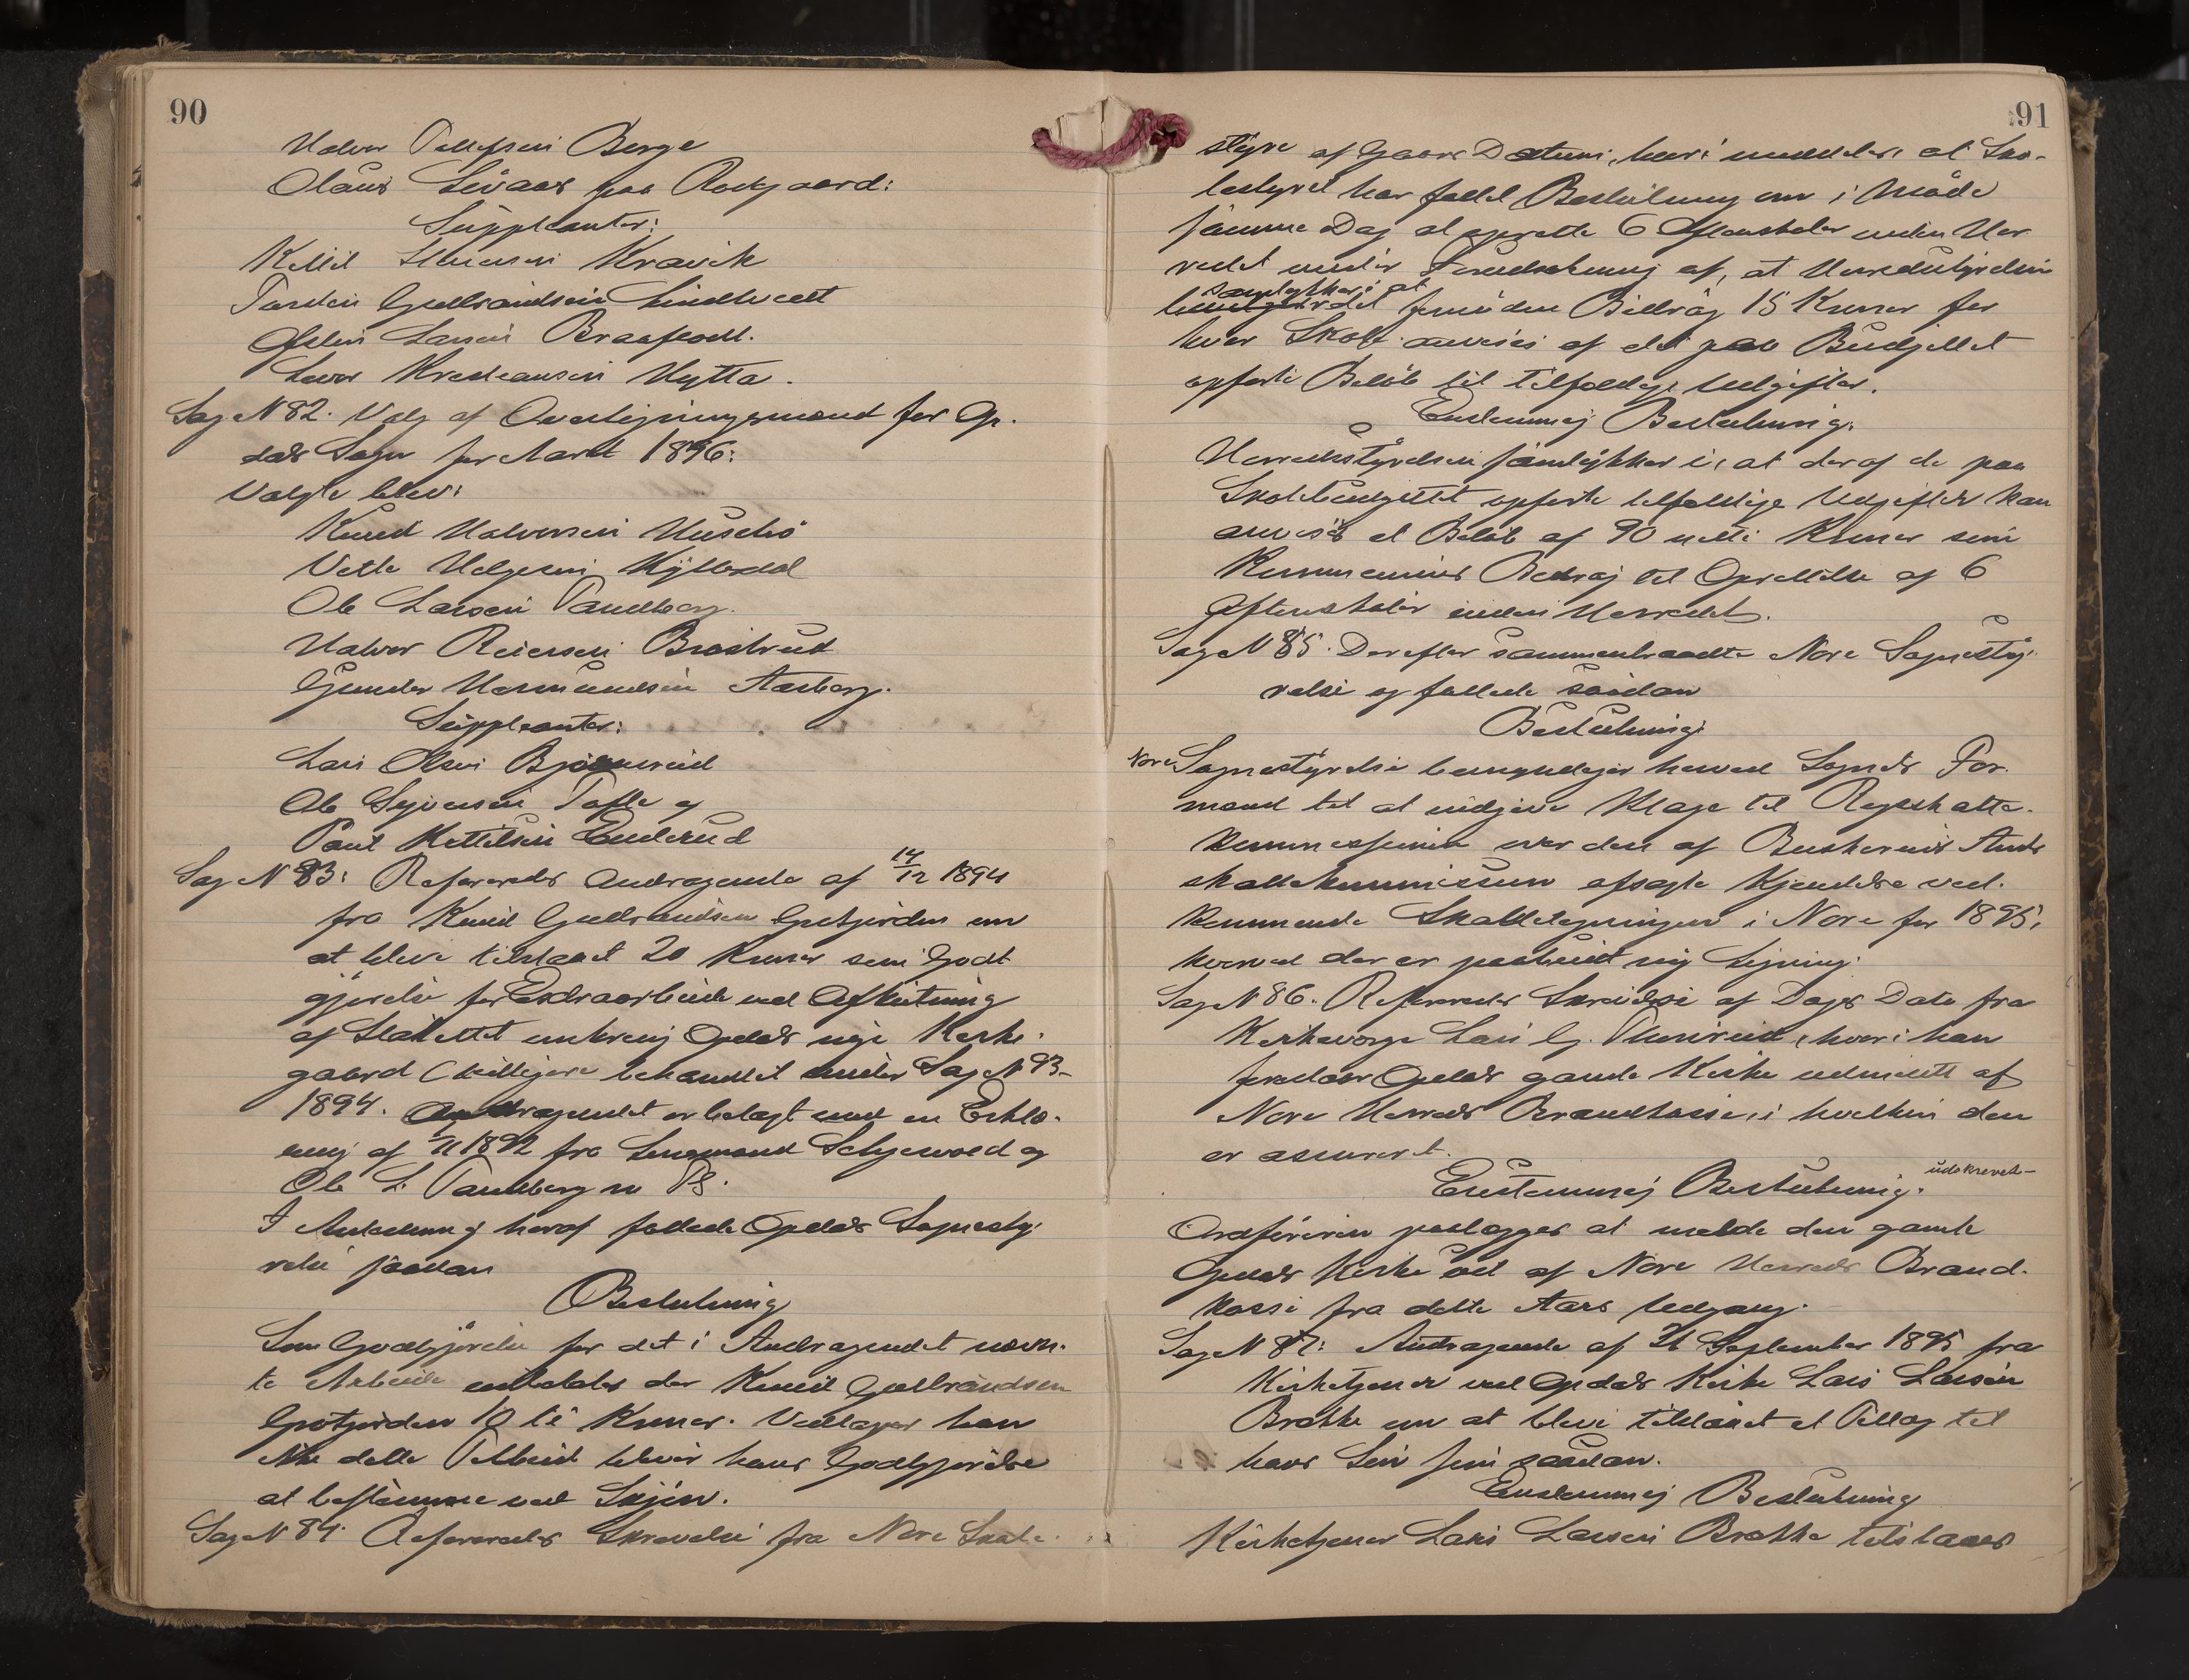 90
Halvor Tollefsen Berge
Olaus Sevaas paa Rodgaard:
Suppleanter:
Kittil Kravik
Torsten Gulbrandsen
Østen Larsen Braafladt.
Levor Kristiansen Hytta.
Sag N 82. Valg af Overligningsmænd for Op-
dals Sogn for Aaret 1896:
Valgte blev:
Knud Halvorsen
Vetle Helgesen
Ole Larsen Tandberg.
Halvor Reiersen Brostrud
Gunder Aasberg.
Suppleanter:
Lars Olsen Bjørnerud
Ole Syversen Tofte og
Paul Kettilsen Enderud
Sag N 83: Refereredes Andragende af 14/12 1894
fra Knud Gulbrandsen Grotjorden om
at blive tilstaaet 20 Kroner som Godt
gjørelse for Exdraarbeide ved Afslutning
af Stakittet omkring Opdals nye Kirke-
gaard (tidligere behandlet under Sag N 93-
1894. Andragendet er belagt med en Erklæ-
ring af fra Lensmand og
Ole L. Tandberg
I Anledning heraf fattede Opdals Sognesty
relse saadan
Beslutning
Som Godtgjørelse for det i Andragendet nævn-
te Arbeide udbetales der Knud Gulbrandsen
Grotjorden 10 ti Kroner. Vedtager han
ikke dette Tilbud bliver hans Godtgjørelse
at bestemme ved Skjøn.
Sag N 84. Refereredes Skrivelse fra Nore Skole-
91
styre af Gaars Datum, hvori meddeles at Sko-
lestyret har fattet Beslutning om i Møde
samme Dag at oprette 6 Aftenskoler inden Her
redet under Forudsætning af, at Herredstyrelsen
samtykker i at
det fornødne Bidrag 15 Kroner for
hver Skole anvises af det paa Budjettet
opførte Beløb til tilfældige Udgifter.
Enstemmig Beslutning:
Herredsstyrelsen samtykker i, at der af de paa
Skolebudgettet opførte tilfældige Udgifter kan
anvises et Beløb af 90 nitti Kroner som
Kommunens Bidrag til Oprettelse af 6
Aftenskoler inden Herredet.
Sag N 85. Derefter sammentraadte Nore Sognesty-
relse og fattede saadan
Beslutning:
Nore Sognestyrelse bemyndiger herved Sognets For-
mand til at indgive Klage til Rigsskatte-
kommissionen over den af Buskeruds Amts
skattekommission afsagte Kjendelse ved-
kommende Skatteligningen i Nore for 1895,
hvorved der er paabudt ny Ligning.
Sag N 86. Refereredes Skrivelse af Dags Dato fra
Kirkeværge Lars G. Thoreud, hvori han
foreslaar Opdals gamle Kirke udmeldt af
Nore Herreds Brandkasse, i hvilken den
er assureret.
Enstemmig Beslutning. udskrevet-
Ordføreren paalægges at melde den gamle
Opdals Kirke ud af Nore Herreds Brand-
kasse fra dette Aars Udgang.
Sag N 87: Andragende af 21 September 1895 fra
Kirketjener ved Opdals Kirke Lars Larsen
Brække om at blive tilstaaet et Tillæg til
hans Løn som saadan.
Enstemmig Beslutning
Kirketjener Lars Larsen Brække tilstaaes